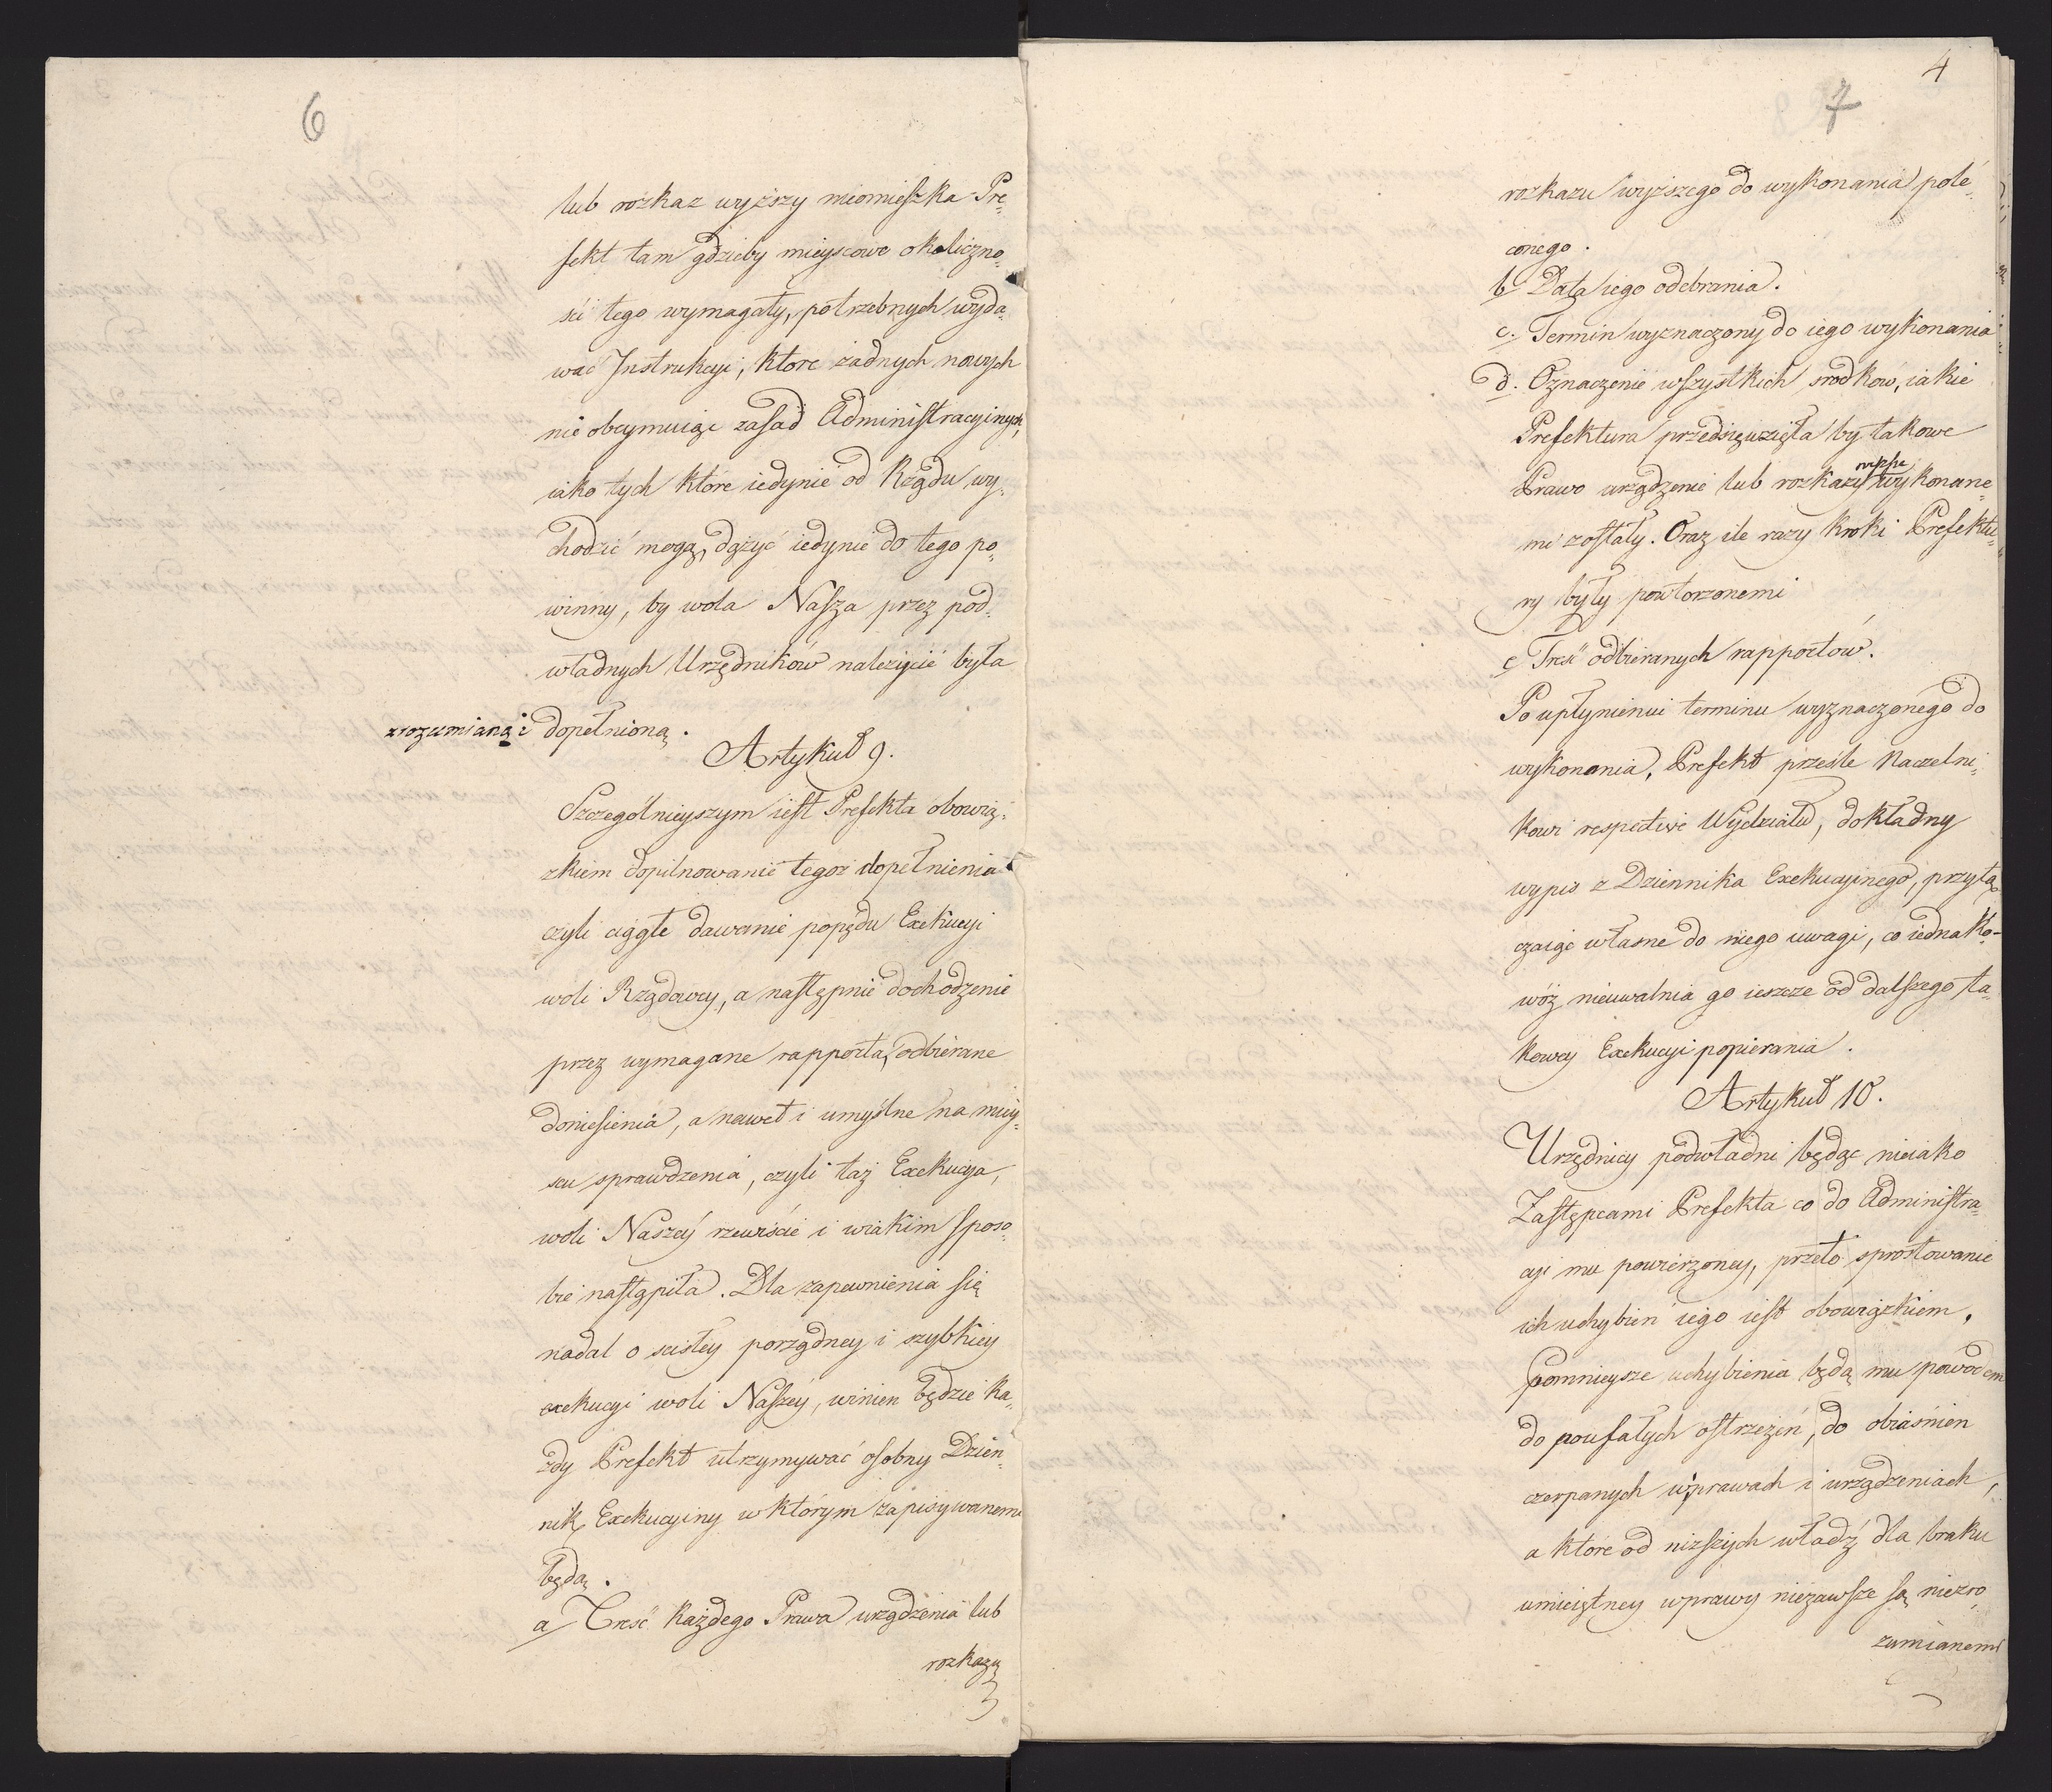 6
lub rozkaz wyższy nieomieszka Pre-
fekt tam gdzieby mieyscowe okoliczno-
ści tego wymagały, potrzebnych wyda-
wać Instrukcyi, które żadnych nowych
nie obeymuiąc zasad Administracyinych,
iako tych które iedynie od Rządu wy-
chodzić mogą, dążyć iedynie do tego po-
winny, by wola Nasza przez pod-
władnych Urzędników należycie była
zrozumianą i dopełnioną.
Artykuł 9.
Szczególnieyszym iest Prefekta obowią-
zkiem dopilnowanie tegoż dopełnienia
czyli ciągłe dawanie popędu Exekucyi
woli Rządowey, a następnie dochodzenie
przez wymagane rapporta, odbierane
doniesienia, a nawet i umyślne na miey-
scu sprawdzenia, czyli taż Exekucya,
woli Naszey rzewiście i wiakim sposo-
bie nastąpiła. Dla zapewnienia się
nadal o scisłey porządney i szybkiey
exekucyi woli Naszey, winien będzie Ka-
żdy Prefekt utrzymywać osobny Dzien-
nik Exekucyiny w którym zapisywanemi
będą.
a/ Treść Każdego Prawa urządzenia lub
rozkazu
4
7
rozkazu wyższego do wykonania pole-
conego.
b/ Data iego odebrania.
c. Termin wyznaczony do iego wykonania
d. Oznaczenie wszystkich srodków, iakie
Prefektura przedsięwzięła by takowe
Prawo urządzenie lub rozkazy wyższe wykonane-
mi zostały. Oraz ile razy kroki Prefektu-
ry były powtorzonemi
e Treść odbieranych rapportów.
Po upłynieniu terminu wyznaczonego do
wykonania, Prefekt prześle Naczelni-
kowi respective Wydziału, dokładny
wypis z Dziennika Exekucyinego, przyłą-
czaiąc własne do niego uwagi, co iednako-
wóż nieuwalnia go ieszcze od dalszego ta-
kowey Exekucyi popierania.
Artykuł 10.
Urzędnicy podwładni będąc nieiako
Zastępcami Prefekta co do Administra-
cyi mu powierzoney, przeto sprostowanie
ich uchybień iego iest obowiązkiem,
Pomnieysze uchybienia będą mu powodem
do poufałych ostrzeżeń, do obiaśnień
czerpanych w prawach i urządzeniach,
a które od niższych władz dla braku
umieiętney wprawy niezawsze są niezro-
zumianemi